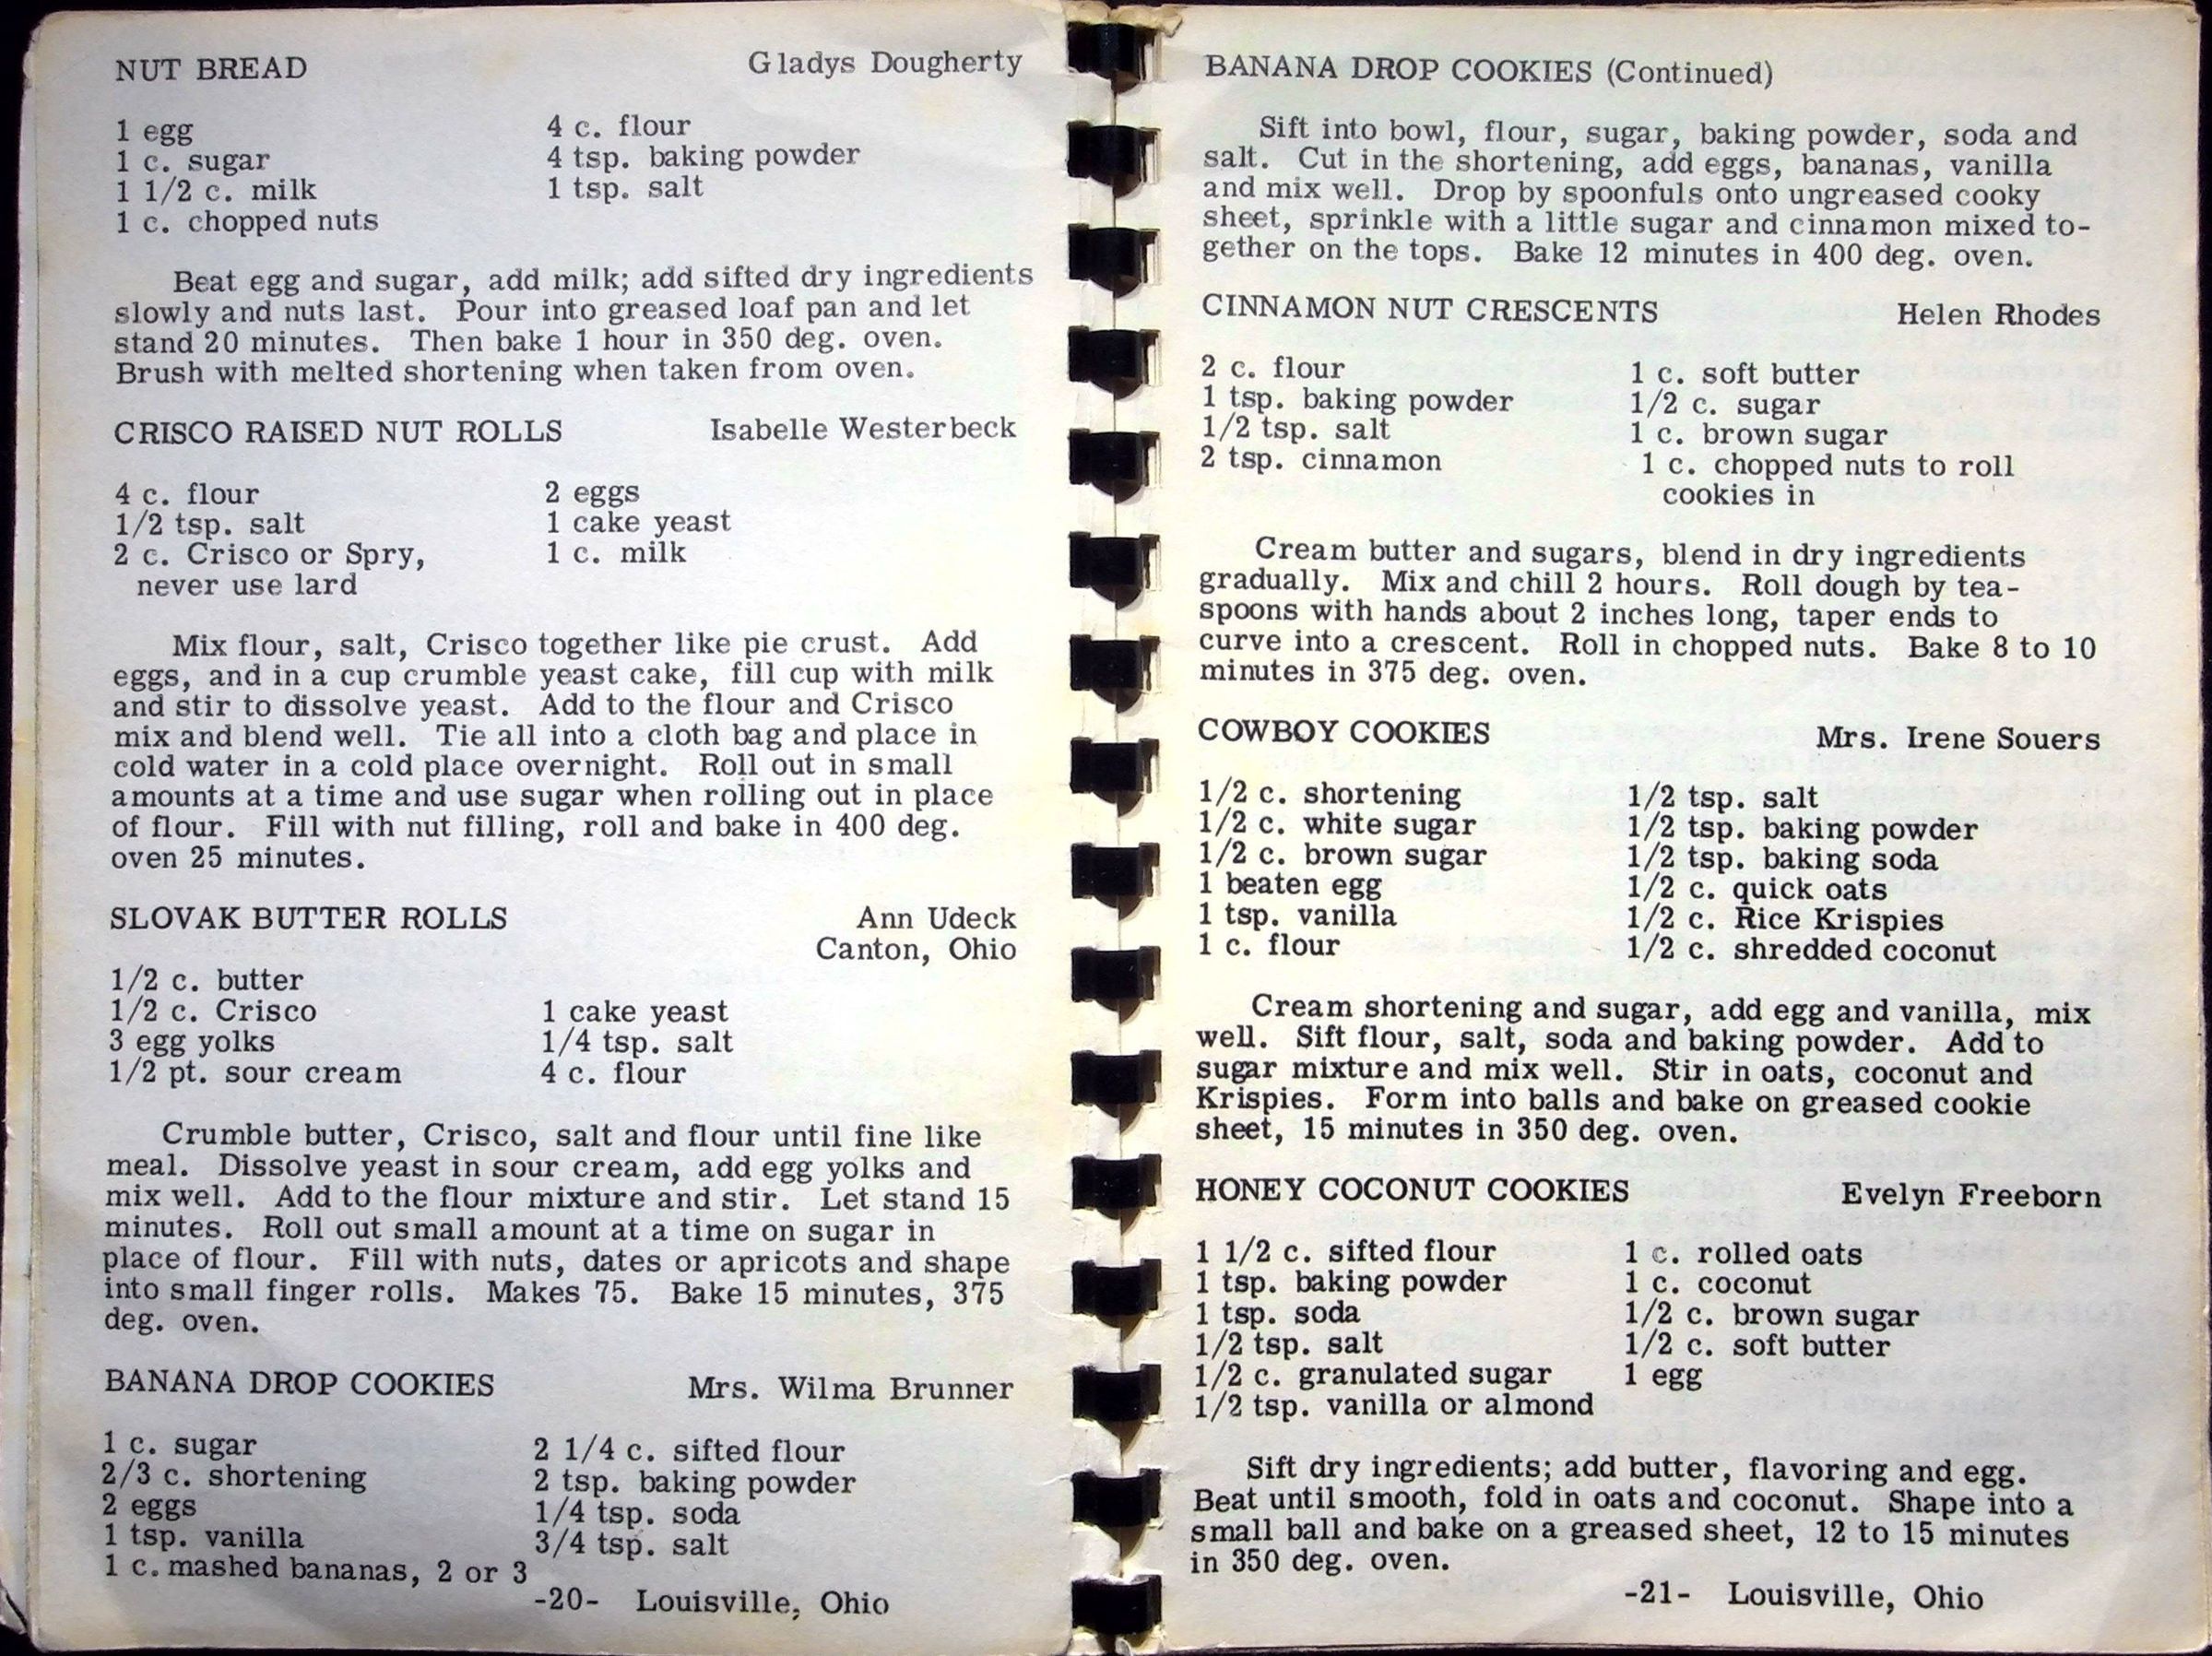 NUT BREAD Gladys Dougherty
1 egg 4 c. flour
1 c. sugar 4 tsp. baking powder
1 1/2 c. milk 1 tsp. salt
1 c. chopped nuts
Beat egg and sugar, add milk; add sifted dry ingredients
slowly and nuts last. Pour into greased loaf pan and let
stand 20 minutes. Then bake 1 hour in 350 deg. oven.
Brush with melted shortening when taken from oven.
CRISCO RAISED NUT ROLLS Isabelle Westerbeck
4 c. flour 2 eggs
1/2 tsp. salt 1 cake yeast
2 c. Crisco or Spry, 1 c. milk
never use lard
Mix flour, salt, Crisco together like pie crust. Add
eggs, and in a cup crumble yeast cake, fill cup with milk
and stir to dissolve yeast. Add to the flour and Crisco
mix and blend well. Tie all into a cloth bag and place in
cold water in a cold place overnight. Roll out in small
amounts at a time and use sugar when rolling out in place
of flour. Fill with nut filling, roll and bake in 400 deg.
oven 25 minutes.
SLOVAK BUTTER ROLLS Ann Udeck
Canton, Ohio
1/2 c. butter
1/2 c. Crisco 1 cake yeast
3 egg yolks 1/4 tsp. salt
1/2 pt. sour cream 4 c. flour
Crumble butter, Crisco, salt and flour until fine like
meal. Dissolve yeast in sour cream, add egg yolks and
mix well. Add to the flour mixture and stir. Let stand 15
minutes. Roll out small amount at a time on sugar in
place of flour. Fill with nuts, dates or apricots and shape
into small finger rolls. Makes 75. Bake 15 minutes, 375
deg. oven.
BANANA DROP COOKIES Mrs. Wilma Brunner
1 c. sugar 2 1/4 c. sifted flour
2/3 c. shortening 2 tsp. baking powder
2 eggs 1/4 tsp. soda
1 tsp. vanilla 3/4 tsp. salt
1 c. mashed bananas, 2 or 3
-20- Louisville, Ohio
BANANA DROP COOKIES (Continued)
Sift into bowl, flour, sugar, baking powder, soda and
salt. Cut in the shortening, add eggs, bananas, vanilla
and mix well. Drop by spoonfuls onto ungreased cooky
sheet, sprinkle with a little sugar and cinnamon mixed to-
gether on the tops. Bake 12 minutes in 400 deg. oven.
CINNAMON NUT CRESCENTS Helen Rhodes
2 c. flour 1 c. soft butter
1 tsp. baking powder 1/2 c. sugar
1/2 tsp. salt 1 c. brown sugar
2 tsp. cinnamon 1 c. chopped nuts to roll
cookies in
Cream butter and sugars, blend in dry ingredients
gradually. Mix and chill 2 hours. Roll dough by tea-
spoons with hands about 2 inches long, taper ends to
curve into a crescent. Roll in chopped nuts. Bake 8 to 10
minutes in 375 deg. oven.
COWBOY COOKIES Mrs. Irene Souers
1/2 c. shortening 1/2 tsp. salt
1/2 c. white sugar 1/2 tsp. baking powder
1/2 c. brown sugar 1/2 tsp. baking soda
1 beaten egg 1/2 c. quick oats
1 tsp. vanilla 1/2 c. Rice Krispies
1 c. flour 1/2 c. shredded coconut
Cream shortening and sugar, add egg and vanilla, mix
well. Sift flour, salt, soda and baking powder. Add to
sugar mixture and mix well. Stir in oats, coconut and
Krispies. Form into balls and bake on greased cookie
sheet, 15 minutes in 350 deg. oven.
HONEY COCONUT COOKIES Evelyn Freeborn
1 1/2 c. sifted flour 1 c. rolled oats
1 tsp. baking powder 1 c. coconut
1 tsp. soda 1/2 c. brown sugar
1/2 tsp. salt 1/2 c. soft butter
1/2 c. granulated sugar 1 egg
1/2 tsp. vanilla or almond
Sift dry ingredients; add butter, flavoring and egg.
Beat until smooth, fold in oats and coconut. Shape into a
small ball and bake on a greased sheet, 12 to 15 minutes
in 350 deg. oven.
-21- Louisville, Ohio